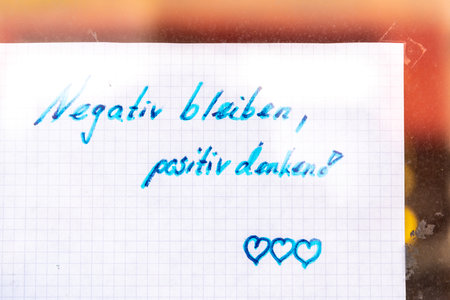 Negativ bleiben,
positiv denken!
♡♡♡